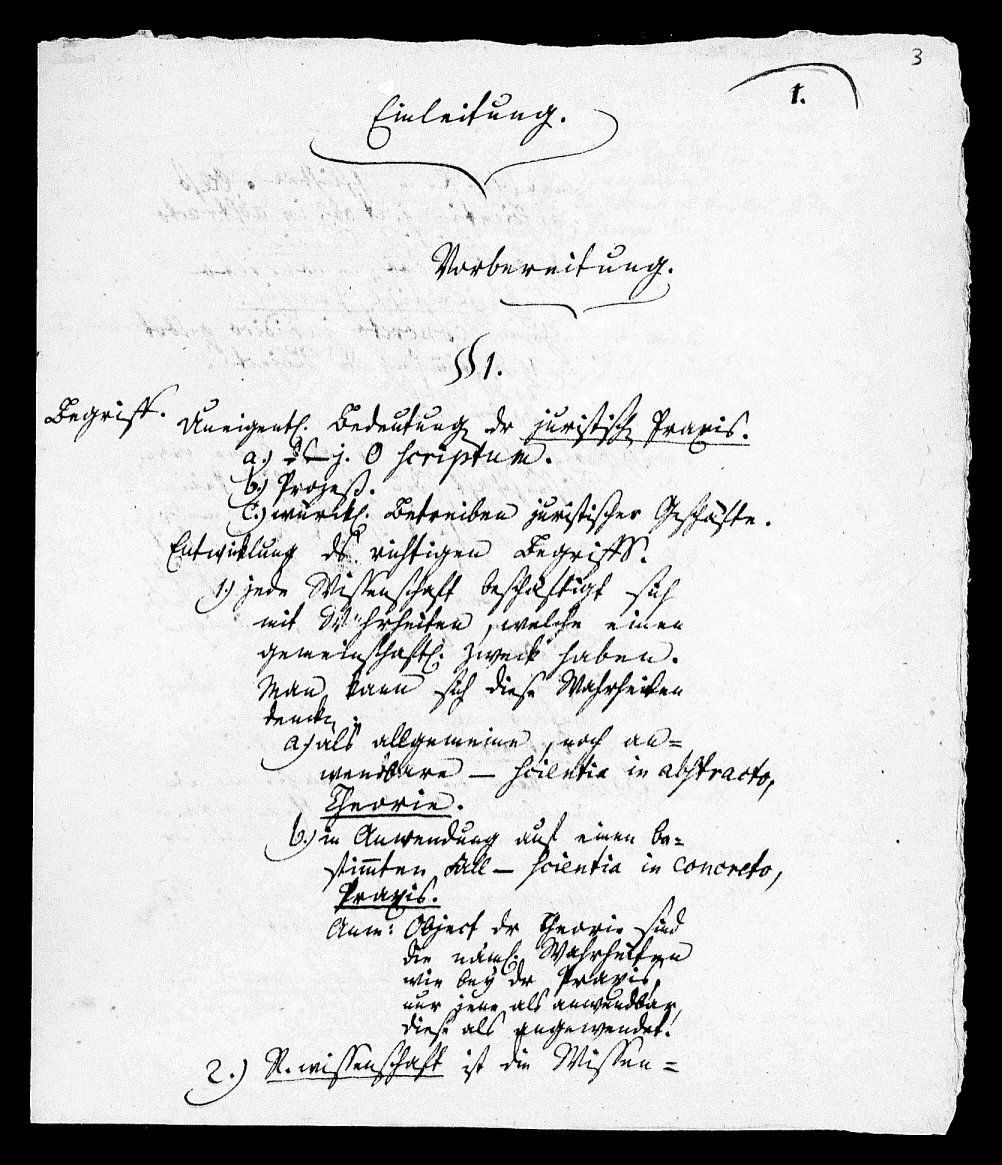 3
1.
Einleitung.
Vorbereitung.
§§ 1.
Begriff. Uneigentl. Bedeutung dr juristisch Praxis.
a.) j. O scriptum.
b.) Prozeß.
c.) würckl. Betreiben juristischer Geschäfte.
Entwicklung ds richtigen Begriffs.
1.) jede Wissenschaft beschäftigt sich
mit Wahrheiten, welche einen
gemeinschaftl. Zweck haben.
Man kann sich diese Wahrheiten
denckn
a.) als allgemeine, noch an=
wendbare – scientia in abstracto,
Theorie.
b.) in Anwendung auf einen be=
stimmten Fall – scientia in concreto,
Praxis.
Anm: Object dr Theorie sind
die näml. Wahrheiten
wie bey dr Praxis,
nur jene als anwendbar,
diese als angewendet.
2.) R.wissenschaft ist die Wissen=